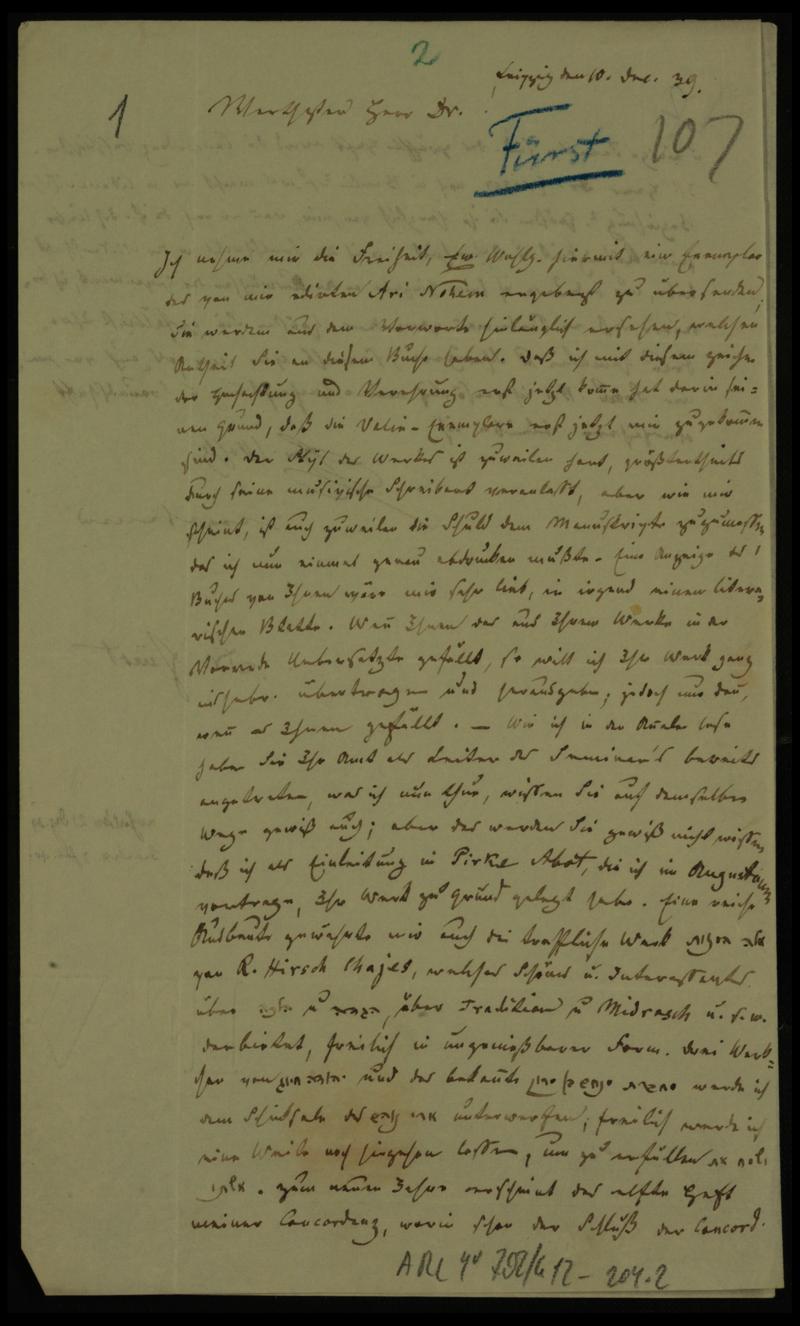 2
Leipzig den 10. Dec. 39.
1
Werthester Herr Dr.
Fürst
107
Ich nehme mir die Freiheit, Ew. Wohlg. hiermit ein Exemplar
des von mir edirten Ari Nohem ergebenst zu übersenden,
Sie werden aus dem Vorworte hinlänglich ersehen, welchen
Antheil Sie an diesem Buche haben. Daß ich mit diesem Zeichen
der Hochachtung und Verehrung erst jetzt komme hat darin sei-
nen Grund, daß die Velin-Exemplare erst jetzt mir zugekommen
sind. Der Styl des Werkes ist zuweilen hart, größtentheils
durch seine musivische Schreibart veranlaßt, aber wie mir
scheint, ist auch zuweilen die Schuld dem Manuskripte zuzumessen
das ich nun einmal genau abdrucken mußte. Eine Anzeige des
Buches von Ihnen wäre mir sehr lieb, in irgend einem litera-
rischen Blatte. Wenn Ihnen das aus Ihrem Werke in der
Vorrede Uebersetzte gefällt, so will ich Ihr Werk ganz
ins hebr. übertragen und herausgeben; jedoch nur dann,
wenn es Ihnen gefällt. — Wie ich in den Annalen lese
haben Sie Ihr Amt als Leiter des Seminar's bereits
angetreten, was ich nun thue, wissen Sie auf demselben
Wege gewiß auch; aber das werden Sie gewiß nicht wissen,
daß ich als Einleitung in Pirke Abot, die ich im
vortrage, Ihr Werk zu Grund gelegt habe. Eine reiche
Ausbeute gewährte mir auch das treffliche Werk
von R. Hirsch Chajes, welches Schönes u. Interessantes
über u , über Tradition u Midrasch u. s. w.
darbietet, freilich in ungenießbarer Form. Drei Werk-
chen von und das bekannte werde ich
dem Schicksale des unterwerfen; freilich werde ich
eine Weile noch hingehen lassen, um zu erfüllen
. Zum neuen Jahre erscheint das elfte Heft
meiner Concordanz, worin schon der Schluß der Concord.
ARC 4° 792/G 12 - 204.2